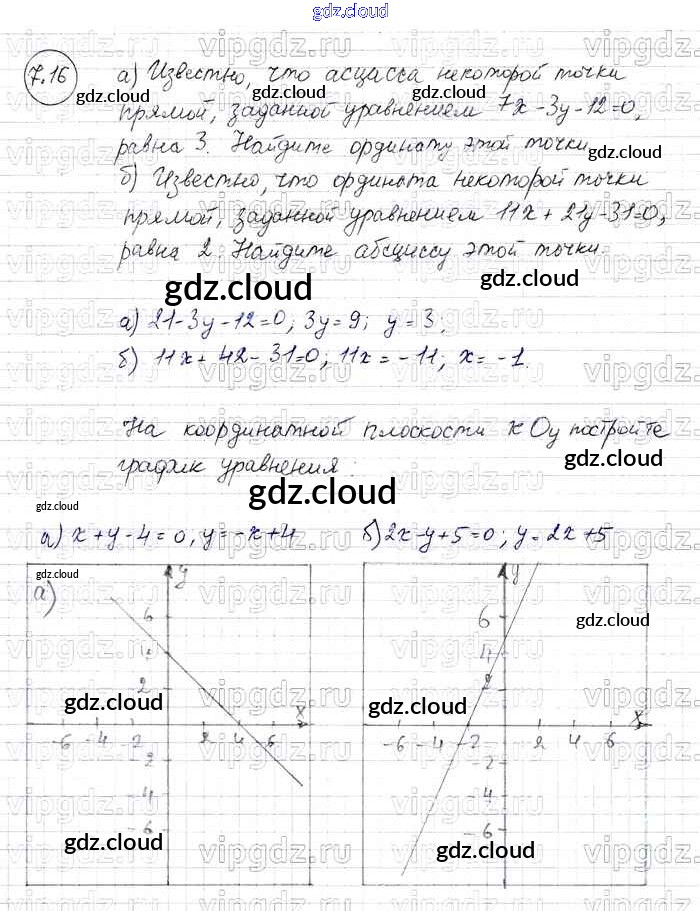 gdz.cloud
7.16
а) Известно, что асцасса некоторой точки
прямой, заданной уравнением 7x - 3y - 12 = 0,
равна 3. Найдите ординату этой точки.
б) Известно, что ордината некоторой точки
прямой, заданной уравнением 11x + 21y - 31 = 0,
равна 2. Найдите абсциссу этой точки.
gdz.cloud
а) 21 - 3y - 12 = 0; 3y = 9; y = 3;
б) 11x + 42 - 31 = 0; 11x = -11; x = -1.
На координатной плоскости xOy постройте
график уравнения:
gdz.cloud
а) x + y - 4 = 0, y = -x + 4
б) 2x - y + 5 = 0; y = 2x + 5
а)
y
6
4
2
x
-6 -4 -2 2 4 6
-2
-4
-6
y
6
4
2
x
-6 -4 -2 2 4 6
-2
-4
-6
gdz.cloud
vipgdz.ru